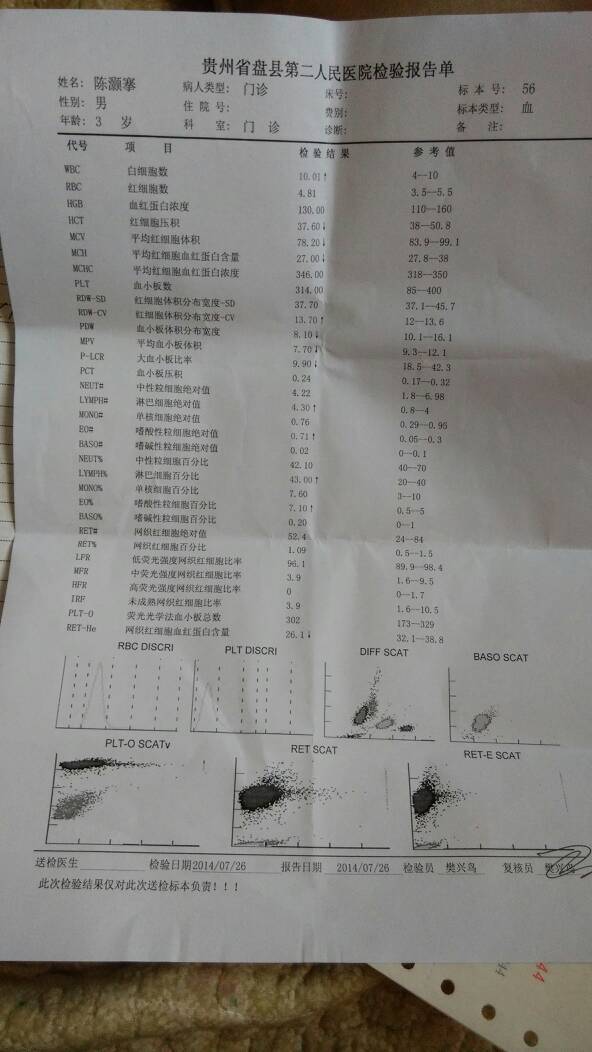 贵州省盘县第二人民医院检验报告单
姓名: 陈灏搴 病人类型: 门诊 床号: 标本号: 56
性别: 男 住院号: 费别: 标本类型: 血
年龄: 3 岁 科室: 门诊 诊断: 备注:
代号 项目 检验结果 参考值
WBC 白细胞数 10.01↑ 4--10
RBC 红细胞数 4.81 3.5--5.5
HGB 血红蛋白浓度 130.00 110--160
HCT 红细胞压积 37.60↓ 38--50.8
MCV 平均红细胞体积 78.20↓ 83.9--99.1
MCH 平均红细胞血红蛋白含量 27.00↓ 27.8--38
MCHC 平均红细胞血红蛋白浓度 346.00 318--350
PLT 血小板数 314.00 85--400
RDW-SD 红细胞体积分布宽度-SD 37.70 37.1--45.7
RDW-CV 红细胞体积分布宽度-CV 13.70↑ 12--13.6
PDW 血小板体积分布宽度 8.10↓ 10.1--16.1
MPV 平均血小板体积 7.70↓ 9.3--12.1
P-LCR 大血小板比率 9.90↓ 18.5--42.3
PCT 血小板压积 0.24 0.17--0.32
NEUT# 中性粒细胞绝对值 4.22 1.8--6.98
LYMPH# 淋巴细胞绝对值 4.30↑ 0.8--4
MONO# 单核细胞绝对值 0.76 0.29--0.95
EO# 嗜酸性粒细胞绝对值 0.71↑ 0.05--0.3
BASO# 嗜碱性粒细胞绝对值 0.02 0--0.1
NEUT% 中性粒细胞百分比 42.10 40--70
LYMPH% 淋巴细胞百分比 43.00↑ 20--40
MONO% 单核细胞百分比 7.60 3--10
EO% 嗜酸性粒细胞百分比 7.10↑ 0.5--5
BASO% 嗜碱性粒细胞百分比 0.20 0--1
RET# 网织红细胞绝对值 52.4 24--84
RET% 网织红细胞百分比 1.09 0.5--1.5
LFR 低荧光强度网织红细胞比率 96.1 89.9--98.4
MFR 中荧光强度网织红细胞比率 3.9 1.6--9.5
HFR 高荧光强度网织红细胞比率 0 0--1.7
IRF 未成熟网织红细胞比率 3.9 1.6--10.5
PLT-O 荧光光学法血小板总数 302 173--329
RET-He 网织红细胞血红蛋白含量 26.1↓ 32.1--38.8
RBC DISCRI PLT DISCRI DIFF SCAT BASO SCAT
PLT-O SCATv RET SCAT RET-E SCAT
送检医生 检验日期2014/07/26 报告日期 2014/07/26 检验员 樊兴鸟 复核员 樊兴鸟
此次检验结果仅对此次送检标本负责！！！
44
44